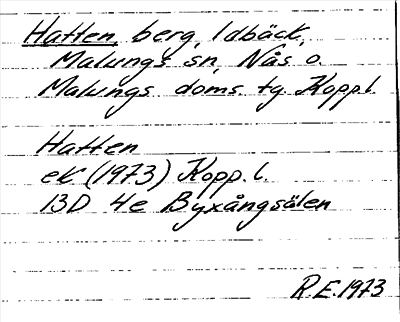 Hatten, berg, Idbäck,
Malungs sn, Nås o.
Malungs doms. tg. Kopp.l.
Hatten
ek (1973) Kopp. l.
13D 4e Byxångsälen
R.E. 1973